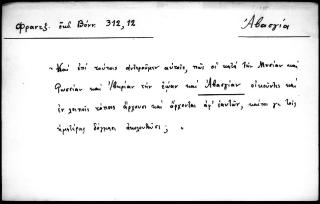 Φραντζ. ἔκδ. Βόνν. 312, 12
Ἀβασγία
"Καὶ ἐπὶ τούτοις ἀντιροῦμεν αὐτοῖς, πῶς οἱ κατὰ τὴν Μυσίαν καὶ
Ῥωσσίαν καὶ Ἰβηρίαν τὴν ἑῴαν καὶ Ἀβασγίαν οἰκοῦντες καὶ
ἐν λοιποῖς τόποις ἄρχουσι καὶ ἄρχονται ἀφ' ἑαυτῶν, καίτοι γε τοῖς
ἡμετέροις δόγμασι ἀκολουθοῦσι;